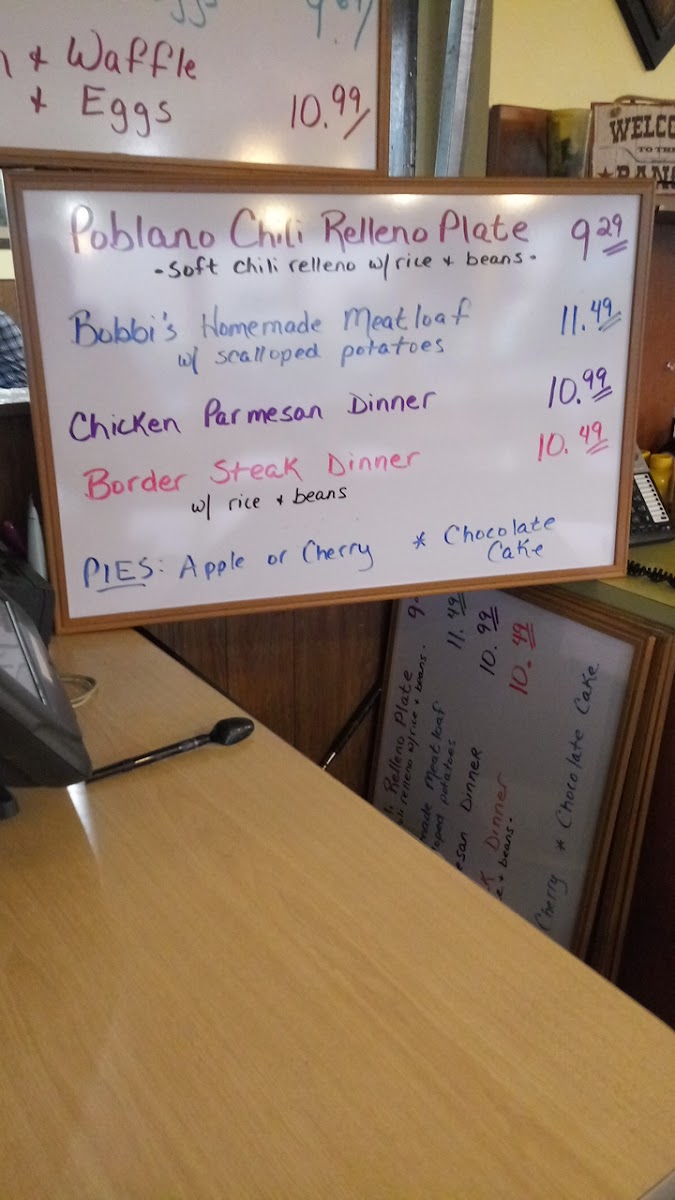 & Waffle
& Eggs 10.99
WELCO
TO THE
Poblano Chili Relleno Plate 9 29
-Soft chili relleno w/rice & beans-
Bobbi's Homemade Meatloaf 11.49
w/ scalloped potatoes
Chicken Parmesan Dinner 10.99
Border Steak Dinner 10.49
w/ rice & beans
PIES: Apple or Cherry * Chocolate
Cake
Relleno Plate 9.
relleno w/rice & beans.
made Meatloaf 11.49
loped potatoes
esan Dinner 10.99
K Dinner 10.49
e & beans.
Cherry * Chocolate Cake